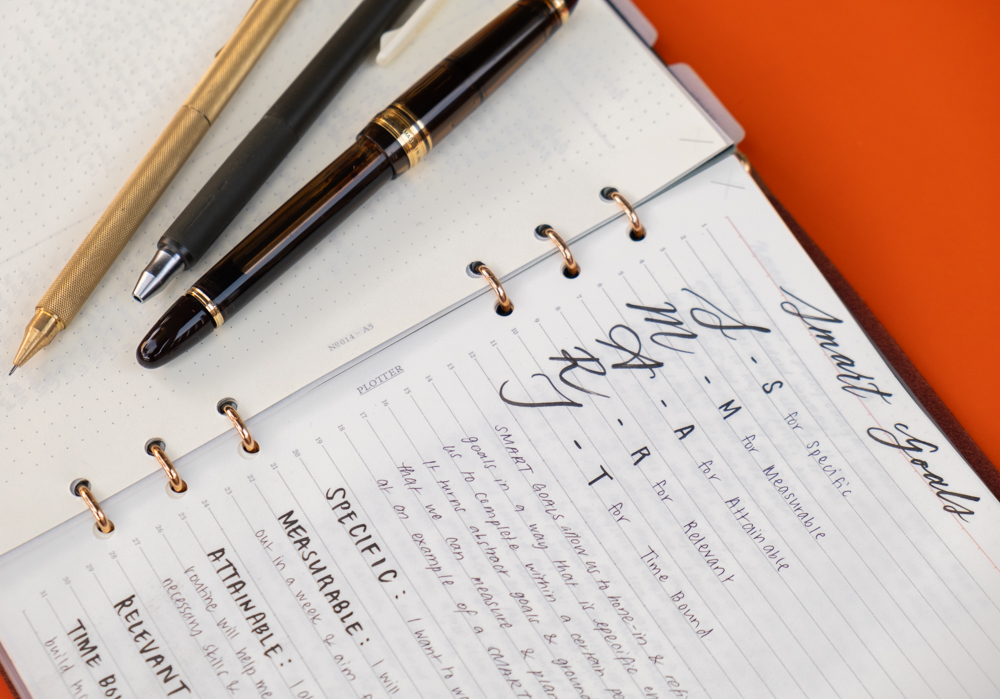 Smart Goals
S - S for Specific
M - M for Measurable
A - A for Attainable
R - R for Relevant
T - T for Time Bound
SMART GOALS allow us to hone-in &
goals in a way that is specific
us to complete within a certain
It turns abstract goals &
that we can measure & plan
at an example of a SMART
SPECIFIC: I want to
MEASURABLE: I will
out in a week & aim
ATTAINABLE:
routine will help me
necessary skills &
RELEVANT
TIME
build
PLOTTER
Nº 014 - A5
7
8
9
10
11
12
13
14
15
16
17
18
19
20
21
22
23
24
25
26
27
28
29
30
31